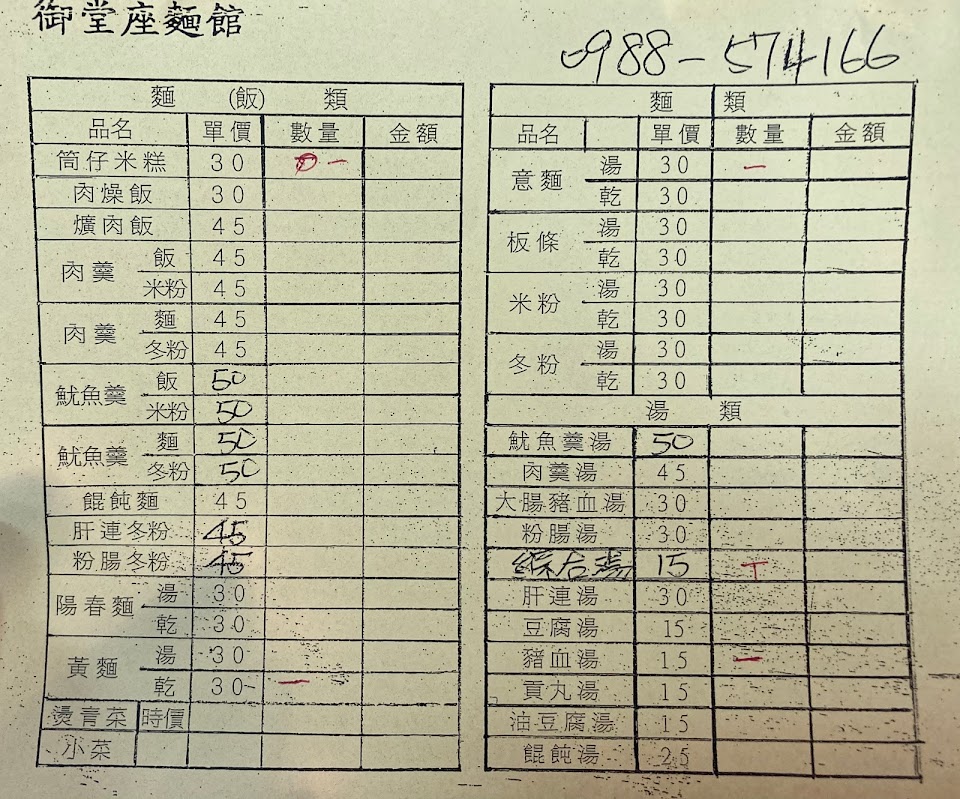 御堂座麵館
0988-574166
麵 (飯) 類
品名 單價 數量 金額
筒仔米糕 30 一
肉燥飯 30
爌肉飯 45
肉羹 飯 45
米粉 45
肉羹 麵 45
冬粉 45
魷魚羹 飯 50
米粉 50
魷魚羹 麵 50
冬粉 50
餛飩麵 45
肝連冬粉 45
粉腸冬粉 45
陽春麵 湯 30
乾 30
黃麵 湯 30
乾 30 一
燙青菜 時價
小菜
麵 類
品名 單價 數量 金額
意麵 湯 30 一
乾 30
板條 湯 30
乾 30
米粉 湯 30
乾 30
冬粉 湯 30
乾 30
湯 類
魷魚羹湯 50
肉羹湯 45
大腸豬血湯 30
粉腸湯 30
綜合湯 15 T
肝連湯 30
豆腐湯 15
豬血湯 15 一
貢丸湯 15
油豆腐湯 15
餛飩湯 25